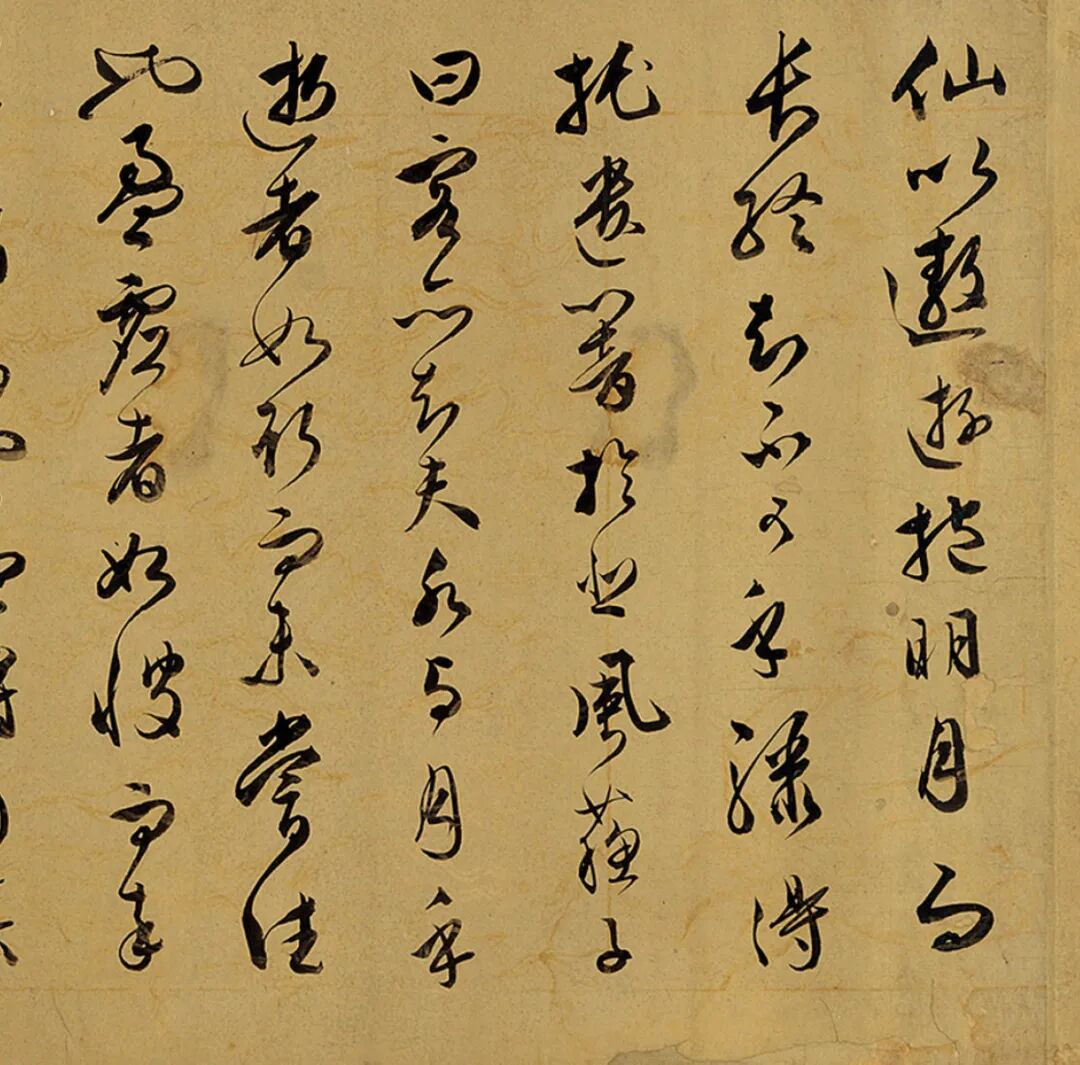 仙以遨遊抱明月而
長終知不可乎驟得
托遺響於悲風蘇子
曰客亦知夫水與月乎
逝者如斯而未嘗往
也盈虛者如彼而卒